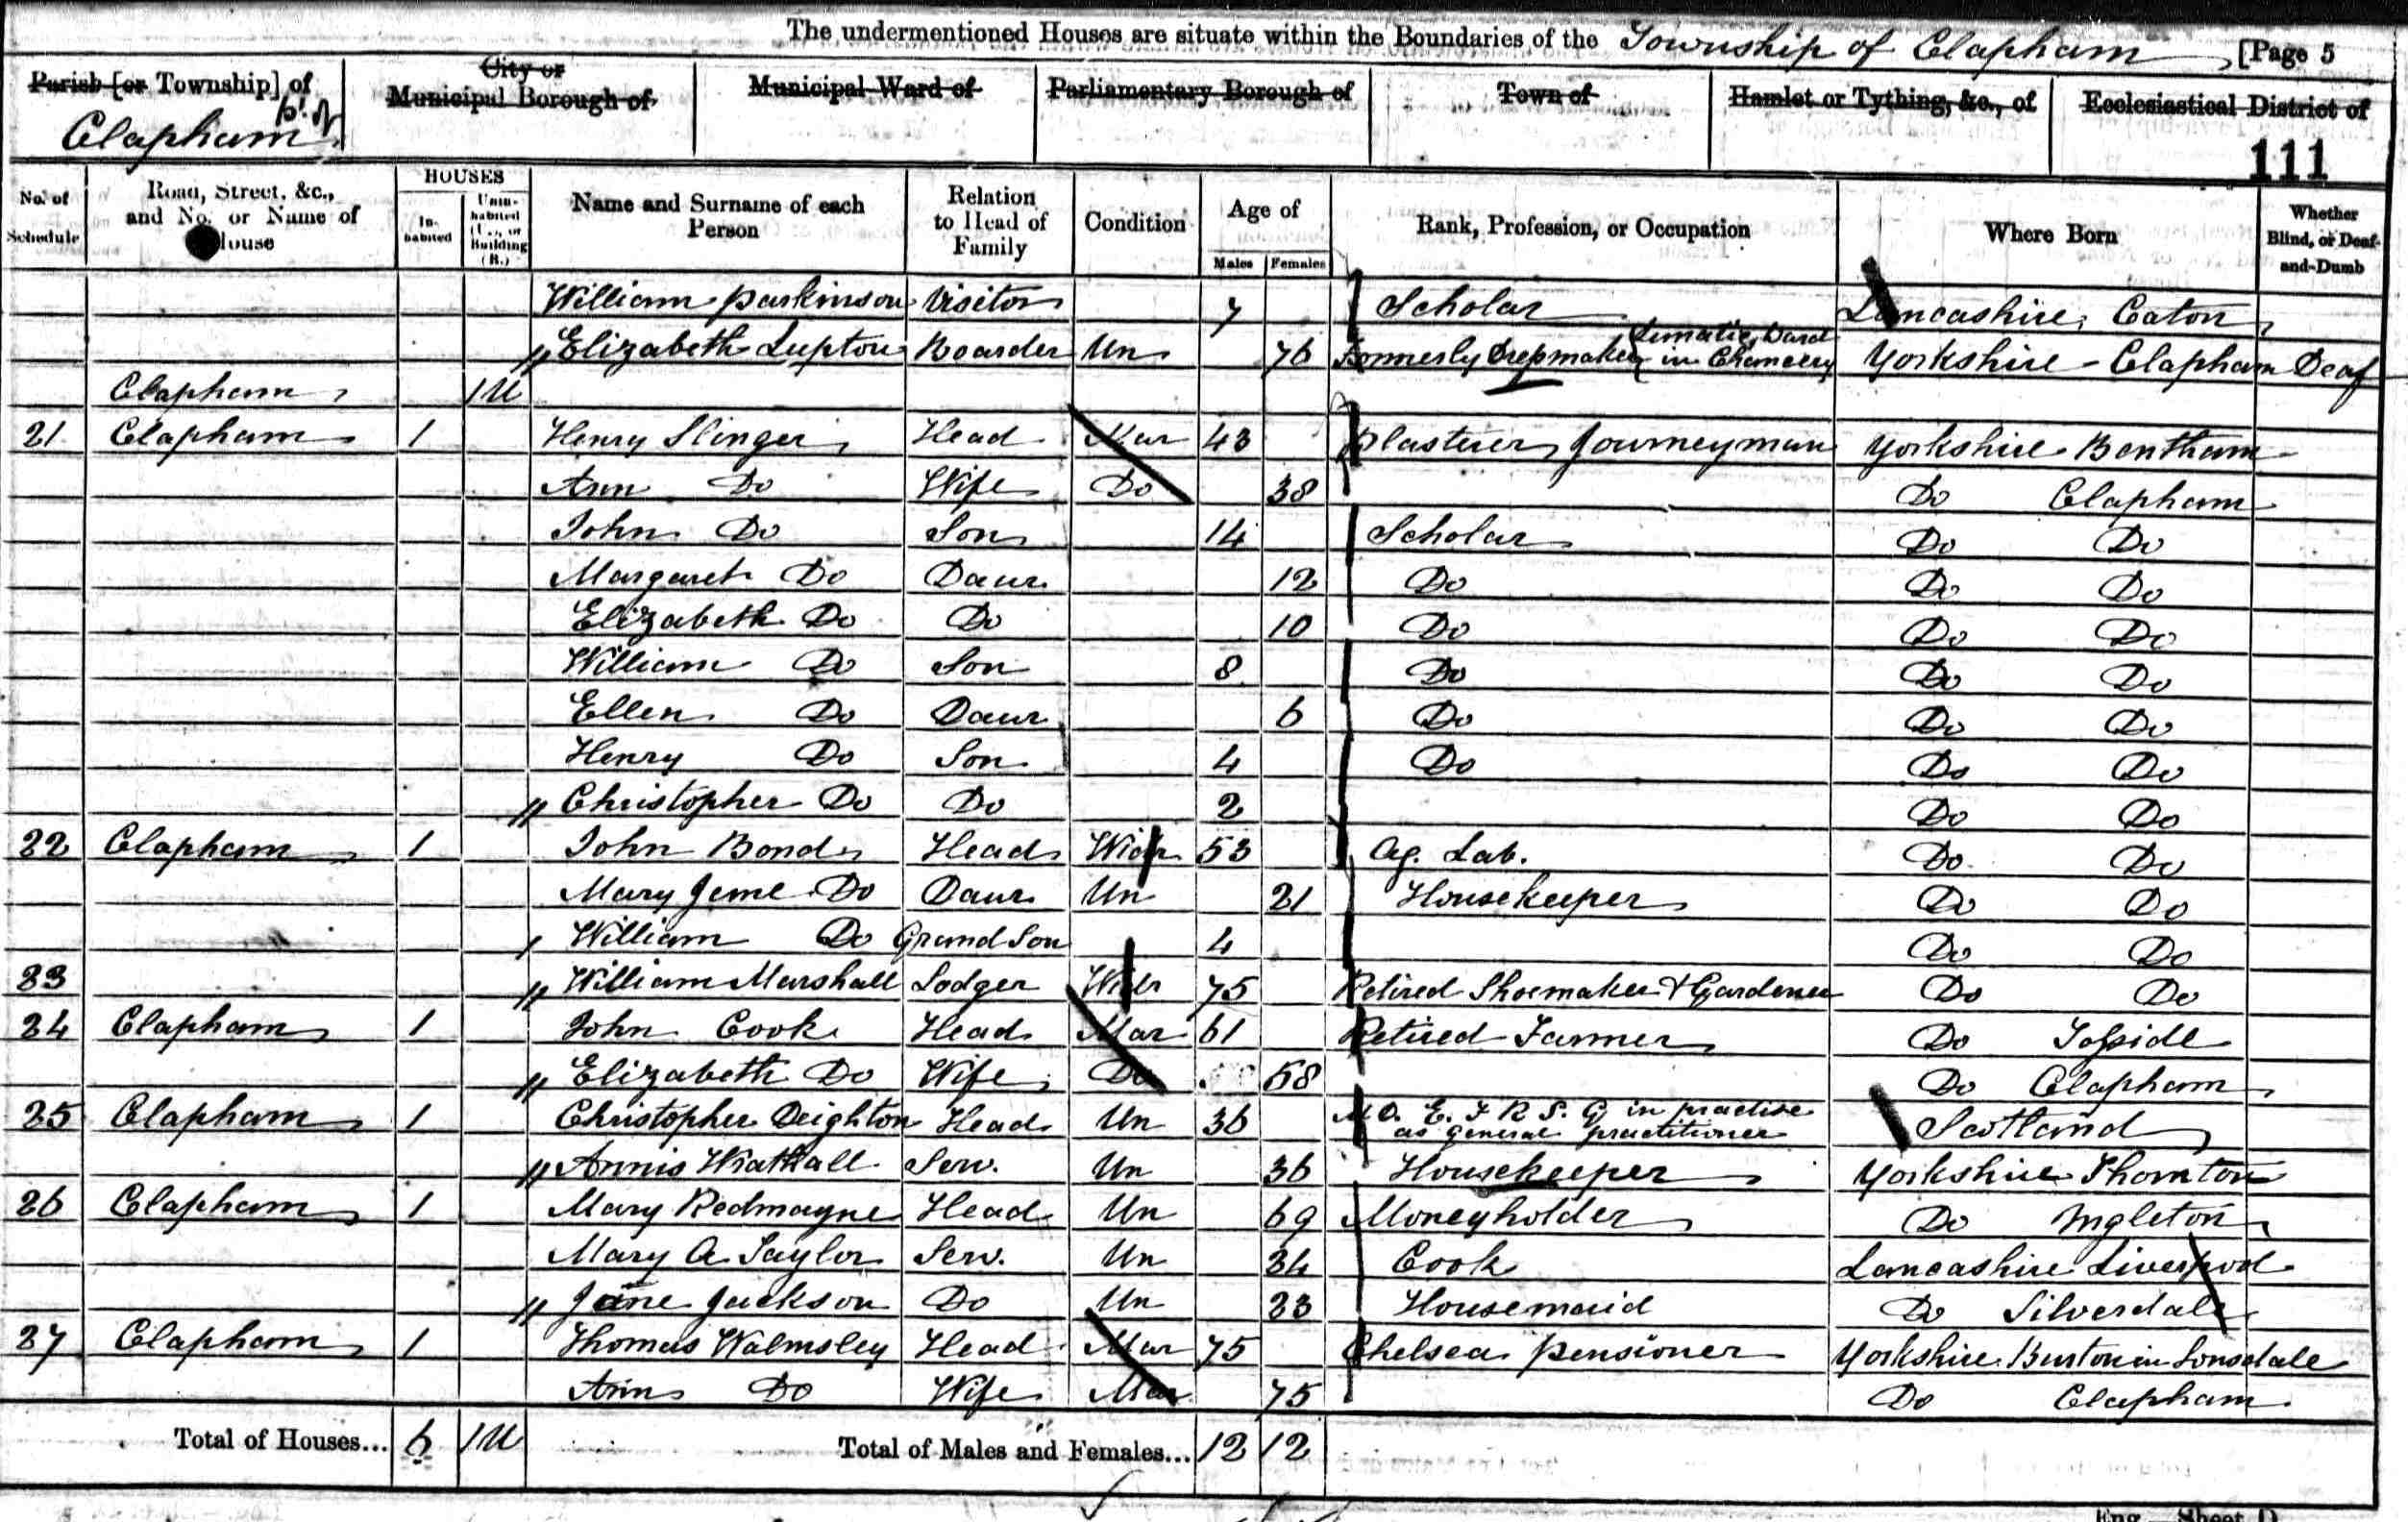 The undermentioned Houses are situate within the Boundaries of the Township of Clapham [Page 5
Parish [or Township] of
Clapham pt of
City or Municipal Borough of
Municipal Ward of
Parliamentary Borough of
Town of
Hamlet or Tything, &c., of
Ecclesiastical District of
111
No. of Schedule
Road, Street, &c., and No. or Name of House
HOUSES
In-habited
Unin-habited (U.), or Building (B.)
Name and Surname of each Person
Relation to Head of Family
Condition
Age of
Males
Females
Rank, Profession, or Occupation
Where Born
Whether Blind, or Deaf-and-Dumb
William Parkinson Visitor 7 Scholar Lancashire, Caton
Elizabeth Lupton Boarder Un 76 Formerly Drepmaker Lunatic, Ward in Chancery Yorkshire - Clapham Deaf
Clapham 1U
21 Clapham 1 Henry Slinger Head Mar 43 Plasterer Journeyman Yorkshire Bentham
Ann Do Wife Do 38 Do Clapham
John Do Son 14 Scholar Do Do
Margaret Do Daur 12 Do Do Do
Elizabeth Do Do 10 Do Do Do
William Do Son 8 Do Do Do
Ellen Do Daur 6 Do Do Do
Henry Do Son 4 Do Do Do
Christopher Do Do 2 Do Do
22 Clapham 1 John Bond Head Widr 53 Ag. Lab. Do Do
Mary Jane Do Daur Un 21 Housekeeper Do Do
William Do Grand Son 4 Do Do
23 William Marshall Lodger Widr 75 Retired Shoemaker & Gardener Do Do
24 Clapham 1 John Cook Head Mar 61 Retired Farmer Do
Elizabeth Do Wife Do 58 Do Clapham
25 Clapham 1 Christopher Deighton Head Un 36 M D. E. F R S. G in practise as general practitioner Scotland
Annis Wrathall Serv. Un 36 Housekeeper Yorkshire Thornton
26 Clapham 1 Mary Redmayne Head Un 69 Moneyholder Do Ingleton
Mary A Taylor Serv. Un 34 Cook Lancashire Liverpool
Jane Jackson Do Un 23 Housemaid Do Silverdale
27 Clapham 1 Thomas Walmsley Head Mar 75 Chelsea Pensioner Yorkshire Burton in Lonsdale
Ann Do Wife Mar 75 Do Clapham
Total of Houses... 6 1U Total of Males and Females... 12 12
Eng.—Sheet D.